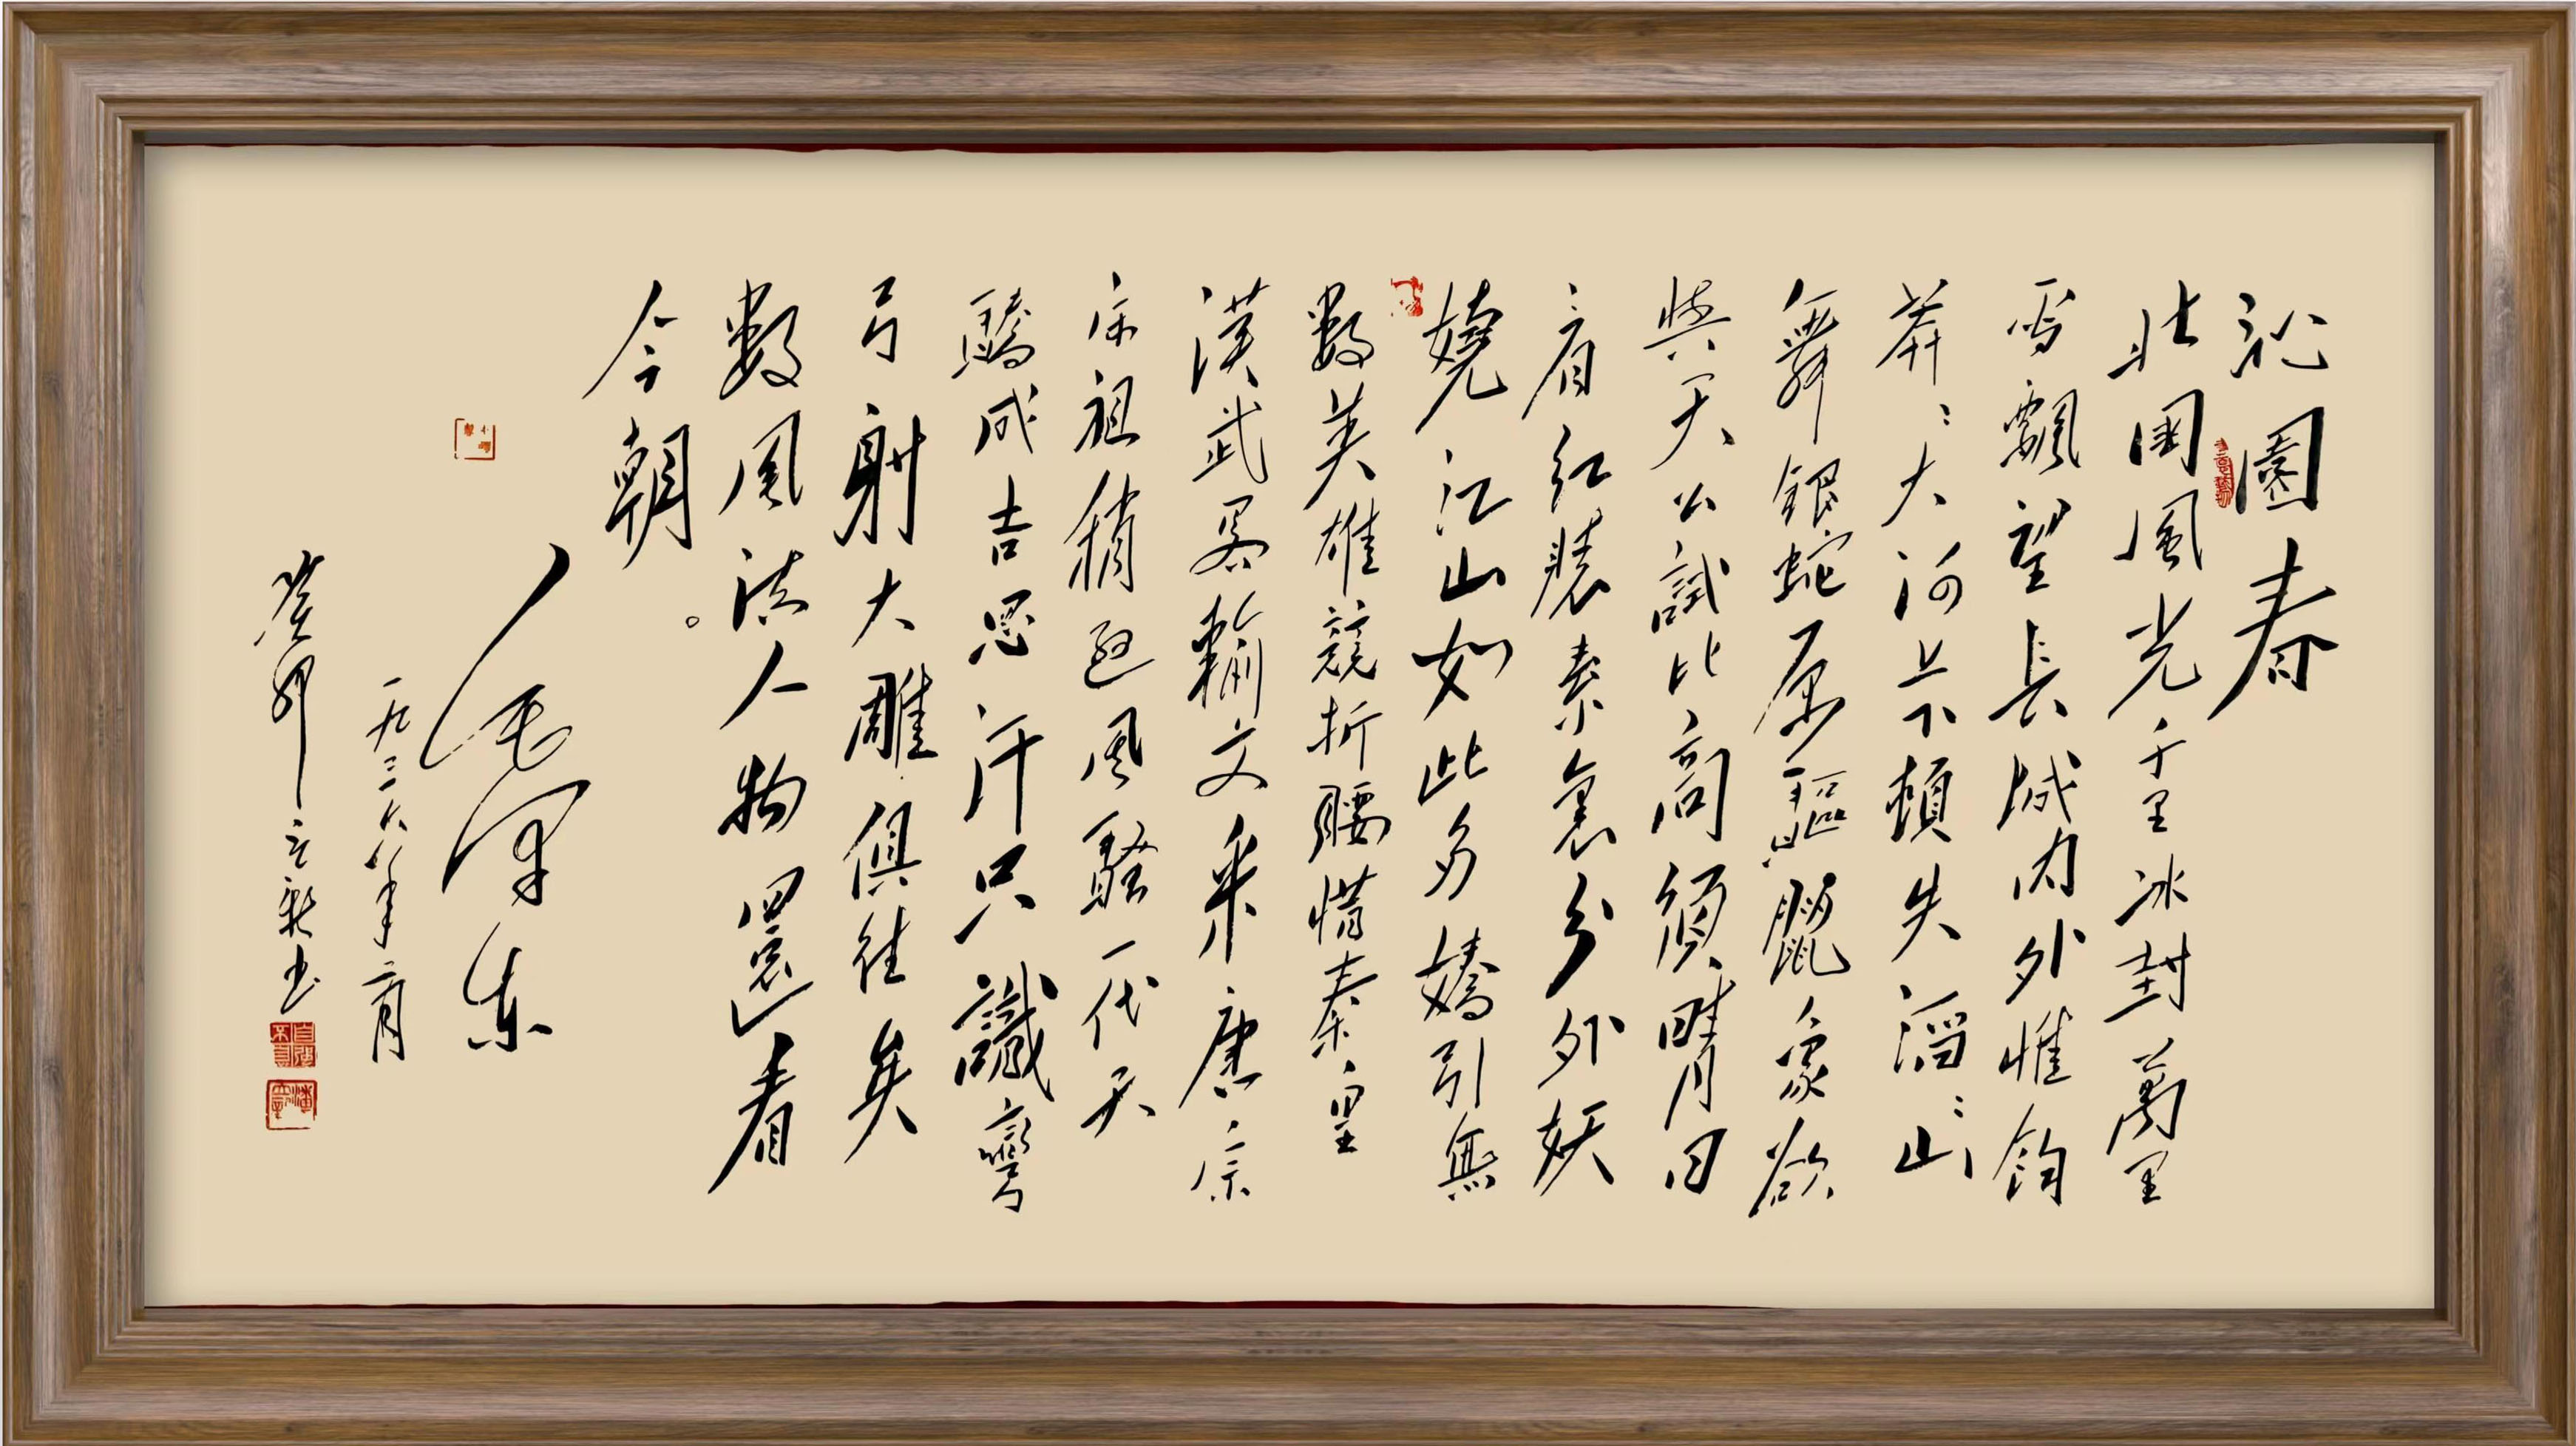 沁園春
北国風光千里冰封萬里
雪飄望長城内外惟餘
莽〻大河上下頓失滔〻山
舞銀蛇原驅臘象欲
與天公試比高須晴日
看紅裝素裹分外妖
嬈江山如此多嬌引無
數英雄競折腰惜秦皇
漢武畧輸文采唐宗
宋祖稍遜風騷一代天
驕成吉思汗只識彎
弓射大雕俱往矣
數風流人物還看
今朝。
毛澤东
一九三六年二月
癸卯